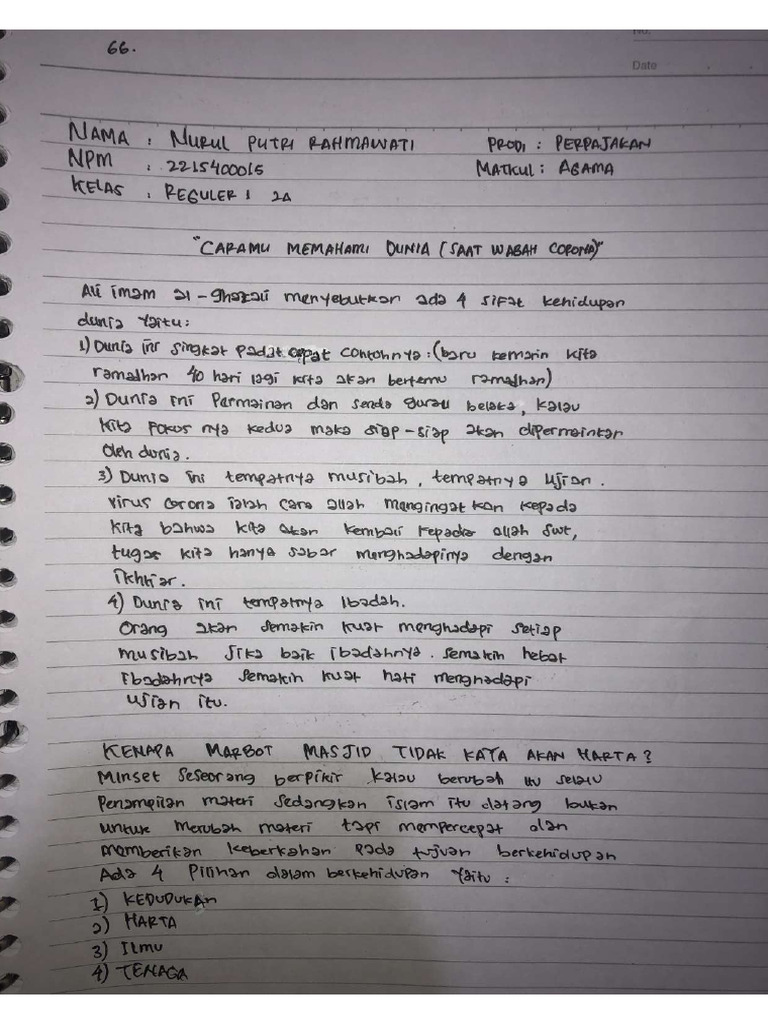 66.
No.
Date
NAMA : NURUL PUTRI RAHMAWATI PRODI : PERPAJAKAN
NPM : 2215400015 MATKUL : AGAMA
KELAS : REGULER 1 2A
"CARAMU MEMAHAMI DUNIA (SAAT WABAH CORONA)"
Ali imam al-ghazali menyebutkan ada 4 sifat kehidupan
dunia yaitu:
1) Dunia ini singkat padat cepat contohnya : (baru kemarin kita
ramadhan 40 hari lagi kita akan bertemu ramadhan)
2) Dunia ini permainan dan senda gurau belaka, kalau
kita fokus nya kedua maka siap-siap akan dipermainkan
oleh dunia.
3) Dunia ini tempatnya musibah, tempatnya ujian.
virus corona ialah cara allah mengingatkan kepada
kita bahwa kita akan kembali kepada allah swt,
tugas kita hanya sabar menghadapinya dengan
ikhtiar.
4) Dunia ini tempatnya ibadah.
Orang akan semakin kuat menghadapi setiap
musibah jika baik ibadahnya. semakin hebat
ibadahnya semakin kuat hati menghadapi
ujian itu.
KENAPA MARBOT MASJID TIDAK KAYA AKAN HARTA?
Minset seseorang berpikir kalau berubah itu selalu
Penampilan materi sedangkan islam itu datang bukan
untuk merubah materi tapi mempercepat dan
memberikan keberkahan pada tujuan berkehidupan
Ada 4 Pilihan dalam berkehidupan yaitu :
1) KEDUDUKAN
2) HARTA
3) ILMU
4) TENAGA